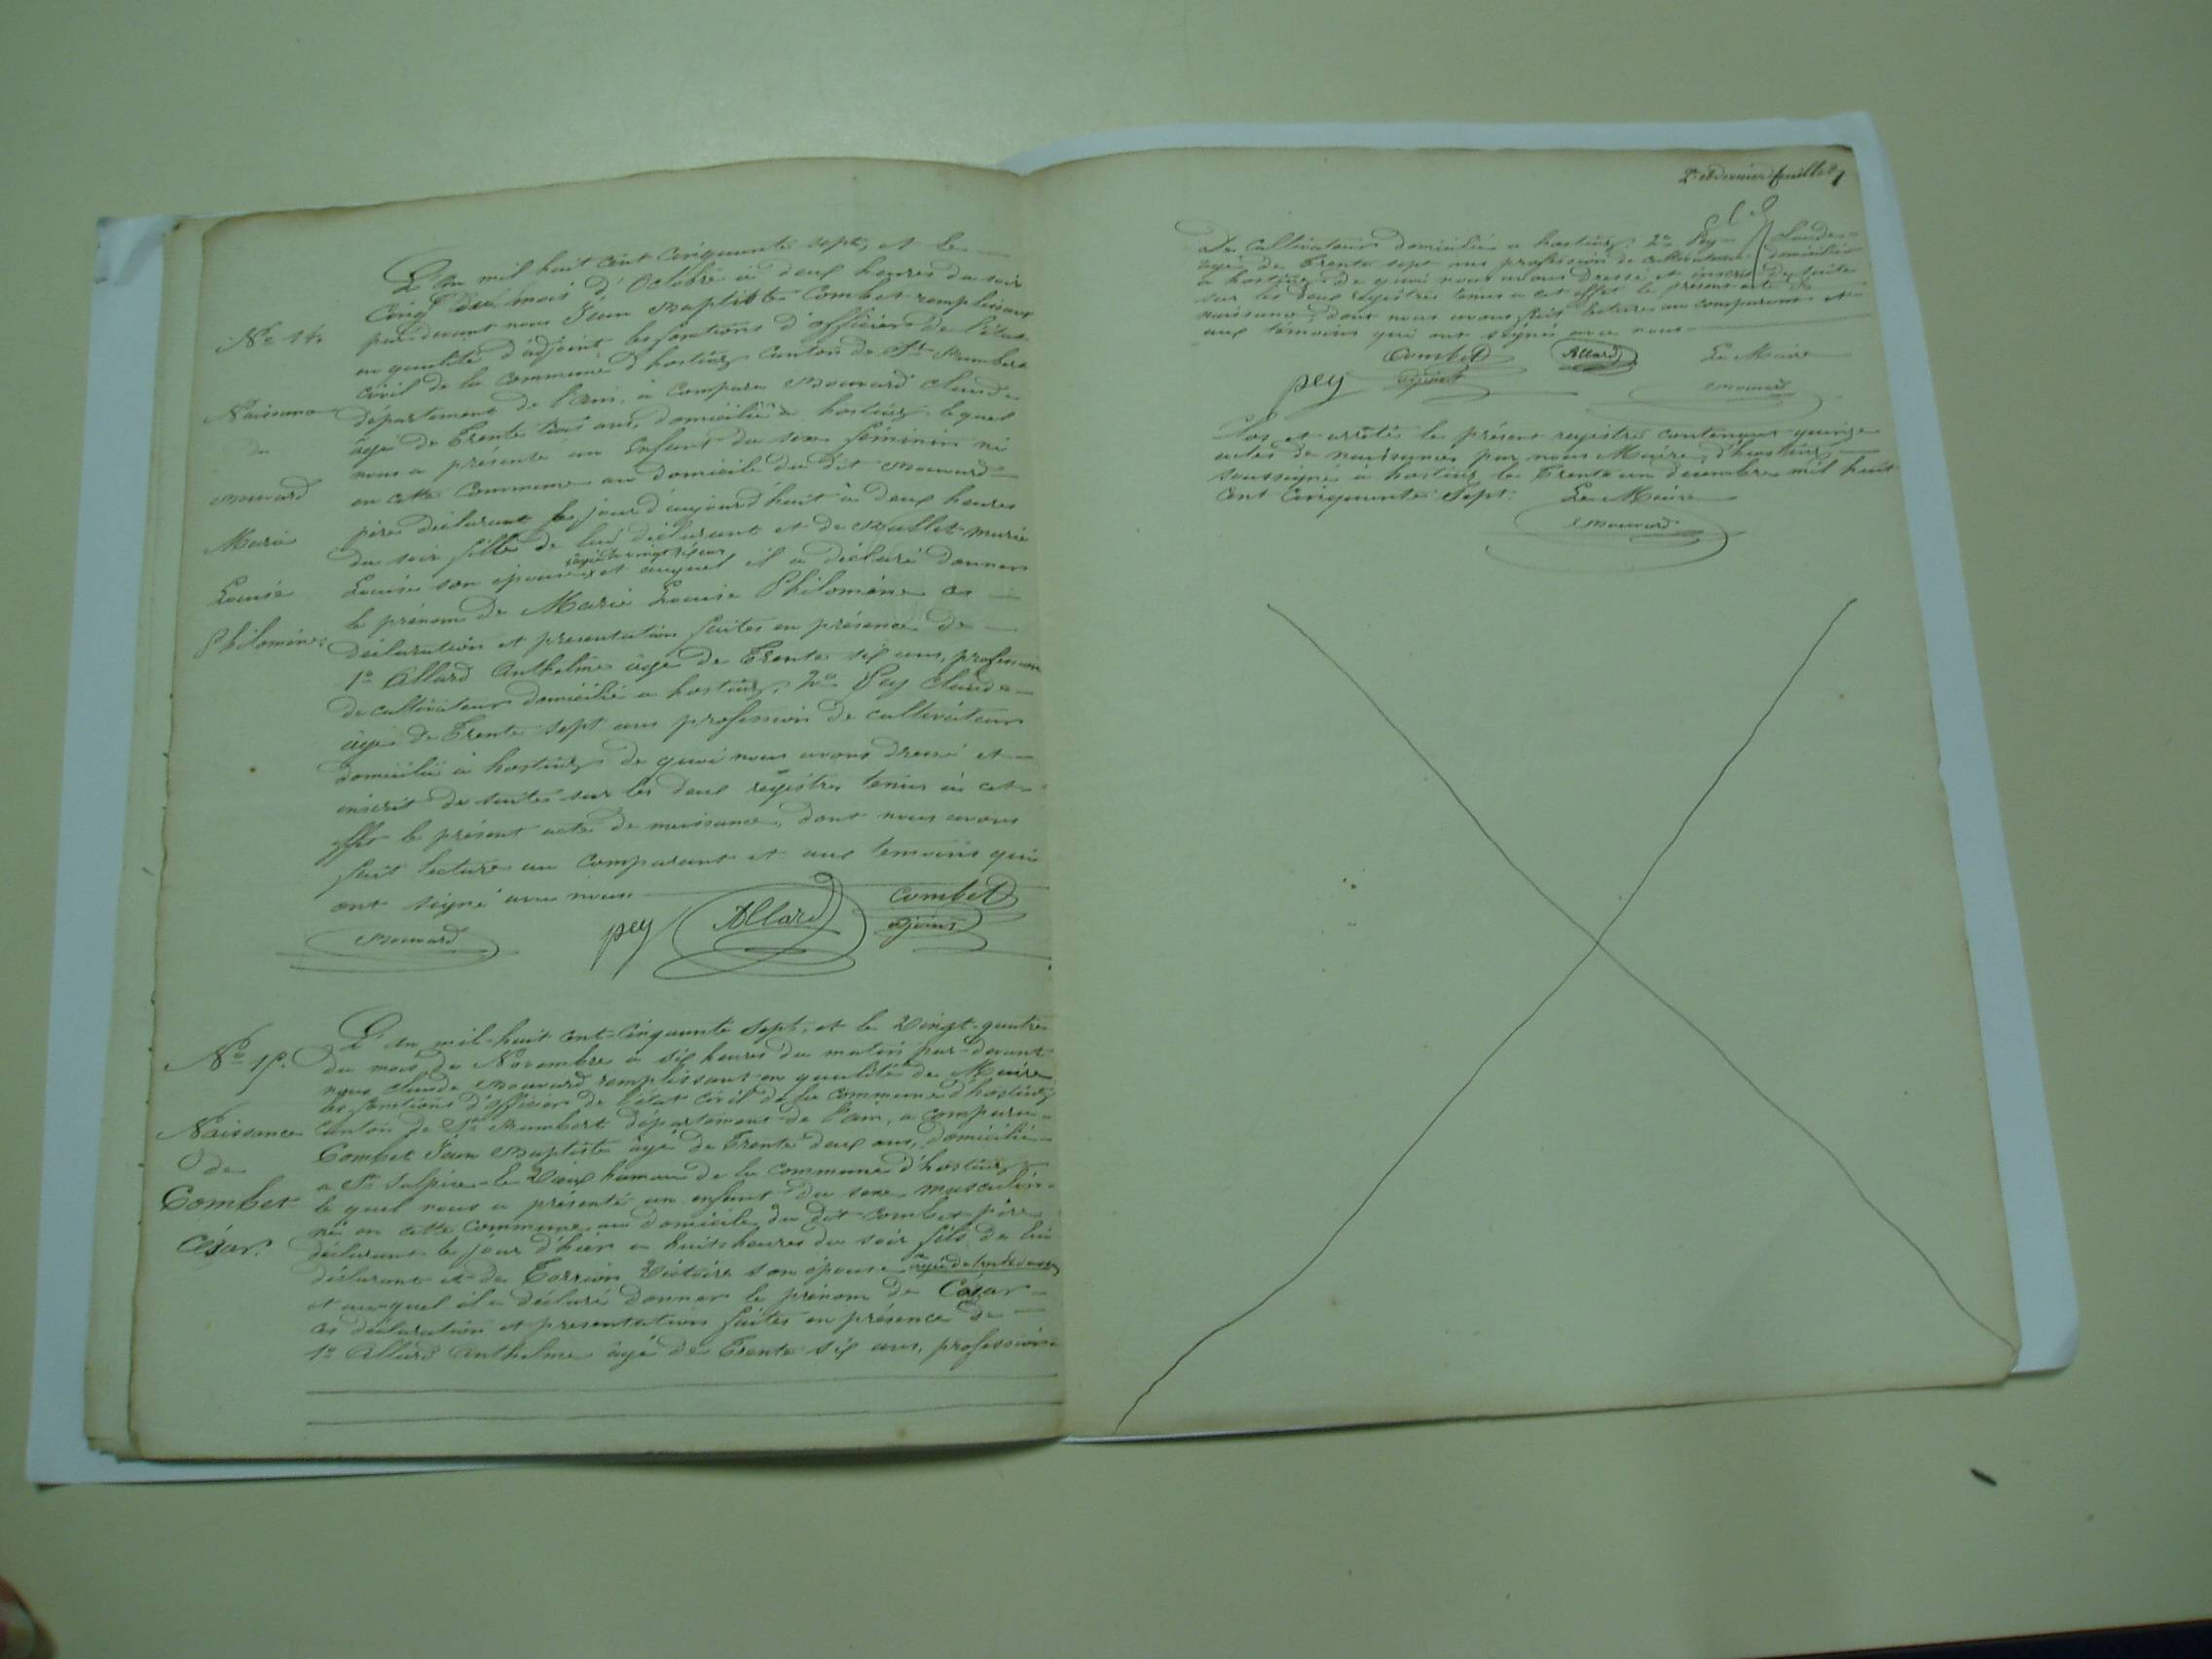 L'an mil huit cent cinquante sept, et le
Cinq du mois d'Octobre à deux heures du soir
par devant nous Jean Baptiste Combet remplissant
en qualité d'adjoint les fonctions d'officier de l'état
civil de la Commune d'hostiaz Canton de St Rambert
département de l'ain, a comparu Bouvard Claude
âgé de Trente trois ans, domicilié à hostiaz, lequel
nous a présenté un Enfant du sexe féminin né
en cette Commune au domicile du dit Bouvard
père déclarant le jour d'aujourd'huit à deux heures
du soir fille de lui déclarant et de Mallet marie
Louise son épouse et auquel il a déclaré donner
le prénom de Marie Louise Philomène ces
déclaration et présentation faites en présence de
1º Allard Anthelme âgé de Trente six ans, profession
de cultivateur domicilié a hostiaz, 2º Pey Claude
âgé de Trente sept ans profession de cultivateur
domicilié à hostiaz de quoi nous avons dressé et
inscrit de suite sur les deux registres tenus à cet
effet le présent acte de naissance, dont nous avons
fait lecture au Comparant et aux temoins qui
ont signé avec nous
Bouvard pey Allard Combet
adjoint
Nº 14.
Naissance
de
Bouvard
Marie
Louise
Philomène
L'an mil-huit cent-Cinquante sept, et le Vingt-quatre
du mois de Novembre a six heures du matin par-devant
nous Claude Bouvard remplissant en qualité de Maire
les fonctions d'officier de l'état civil de la commune d'hostiaz
Canton de St Rambert département de l'ain, a comparu
Combet Jean Baptiste âgé de Trente deux ans, domicilié
a St Sulpice-le Vieux hameau de la Commune d'hostiaz
le quel nous a présenté un enfant du sexe masculin
né en cette Commune au domicile du dit Combet père
déclarant le jour d'hier a huit heures du soir fils de lui
déclarant et de Victoire son épouse âgée de
et auquel il a déclaré donner le prénom de César
ces déclaration et présentation faites en présence de
1º Allard Anthelme âgé de Trente six ans, profession
Nº 15.
Naissance
de
Combet
César.
2e et dernier feuillet
De Cultivateur domicilié a hostiaz. 2º Pey Claude
âgé de Trente sept ans profession de cultivateur domicilié
a hostiaz de quoi nous avons dressé et inscrit de suite
sur les deux registres tenus a cet effet le présent acte de
naissance, dont nous avons fait lecture au comparant et
aux témoins qui ont signé avec nous
Combet Allard Le Maire
pey adjoint Bouvard
Clos et arrêté le présent registre contenant quinze
actes de naissance par nous Maire d'hostiaz
soussigné à hostiaz le Trente un décembre mil huit
Cent Cinquante Sept. Le Maire
Bouvard